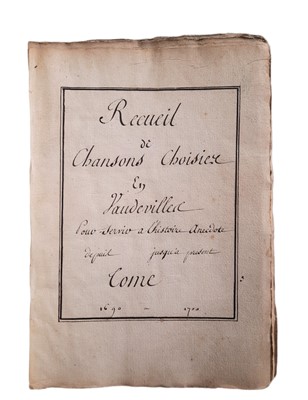 Recueil
de
Chansons Choisies
En
Vaudevilles
Pour servir a L'histoire Anecdote
depuis jusqu'a present
Tome
1690 – 1700